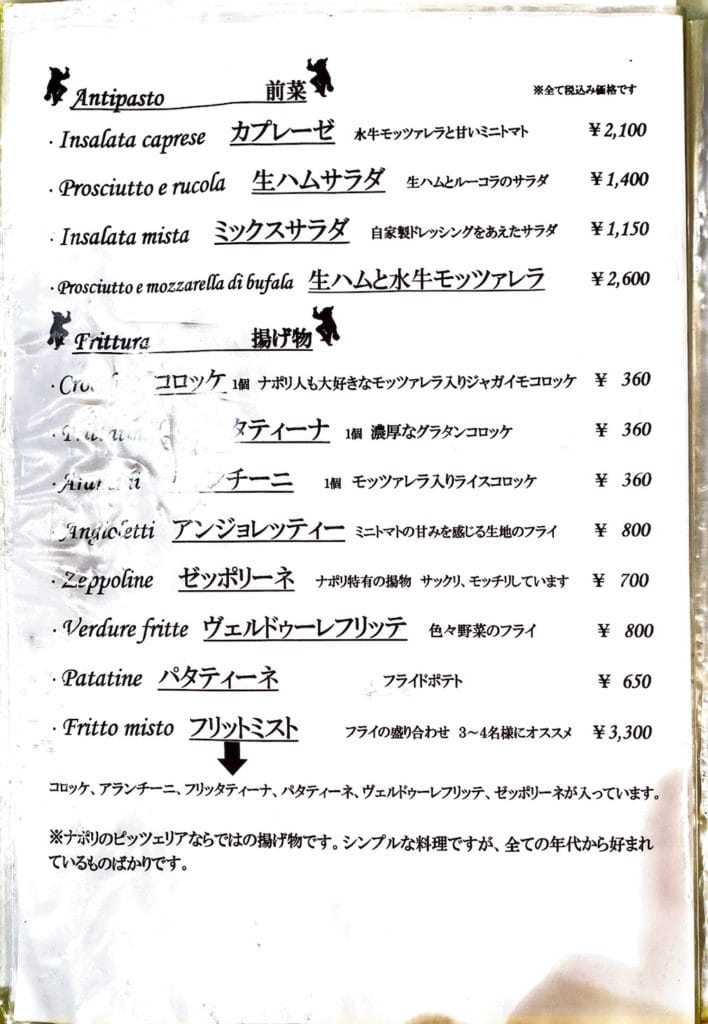 Antipasto 前菜 ※全て税込み価格です
・Insalata caprese カプレーゼ 水牛モッツァレラと甘いミニトマト ￥2,100
・Prosciutto e rucola 生ハムサラダ 生ハムとルーコラのサラダ ￥1,400
・Insalata mista ミックスサラダ 自家製ドレッシングをあえたサラダ ￥1,150
・Prosciutto e mozzarella di bufala 生ハムと水牛モッツァレラ ￥2,600
Frittura 揚げ物
コロッケ 1個 ナポリ人も大好きなモッツァレラ入りジャガイモコロッケ ￥ 360
タティーナ 1個 濃厚なグラタンコロッケ ￥ 360
ンチーニ 1個 モッツァレラ入りライスコロッケ ￥ 360
・Angioletti アンジョレッティー ミニトマトの甘みを感じる生地のフライ ￥ 800
・Zeppoline ゼッポリーネ ナポリ特有の揚物 サックリ、モッチリしています ￥ 700
・Verdure fritte ヴェルドゥーレフリッテ 色々野菜のフライ ￥ 800
・Patatine パタティーネ フライドポテト ￥ 650
・Fritto misto フリットミスト フライの盛り合わせ 3〜4名様にオススメ ￥3,300
コロッケ、アランチーニ、フリッタティーナ、パタティーネ、ヴェルドゥーレフリッテ、ゼッポリーネが入っています。
※ナポリのピッツェリアならではの揚げ物です。シンプルな料理ですが、全ての年代から好まれ
ているものばかりです。